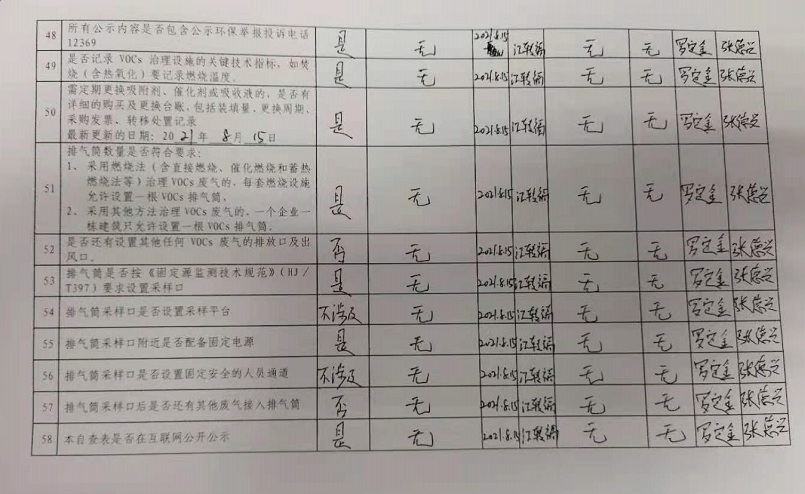 48 所有公示内容是否包含公示环保举报投诉电话
12369 是 无 2021.8.15 无 无 罗定金 张德兴
49 是否记录 VOCs 治理设施的关键技术指标，如焚
烧（含热氧化）要记录燃烧温度。 是 无 2021.8.15 无 无 罗定金 张德兴
50 需定期更换吸附剂、催化剂或吸收液的，是否有
详细的购买及更换台账，包括装填量、更换周期、
采购发票、转移处置记录
最新更新的日期：2021年 8月 15日 是 无 2021.8.15 无 无 罗定金 张德兴
51 排气筒数量是否符合要求：
1、 采用燃烧法（含直接燃烧、催化燃烧和蓄热
燃烧法等）治理 VOCs 废气的，每套燃烧设施
允许设置一根 VOCs 排气筒。
2、 采用其他方法治理 VOCs 废气的，一个企业一
栋建筑只允许设置一根 VOCs 排气筒。 是 无 2021.8.15 无 无 罗定金 张德兴
52 是否还有设置其他任何 VOCs 废气的排放口及出
风口。 否 无 2021.8.15 无 无 罗定金 张德兴
53 排气筒是否按《固定源监测技术规范》（HJ/
T397）要求设置采样口 是 无 2021.8.15 无 无 罗定金 张德兴
54 排气筒采样口是否设置采样平台 不涉及 无 2021.8.15 无 无 罗定金 张德兴
55 排气筒采样口附近是否配备固定电源 是 无 2021.8.15 无 无 罗定金 张德兴
56 排气筒采样口是否设置固定安全的人员通道 不涉及 无 2021.8.15 无 无 罗定金 张德兴
57 排气筒采样口后是否还有其他废气接入排气筒 否 无 2021.8.15 无 无 罗定金 张德兴
58 本自查表是否在互联网公开公示 是 无 2021.8.15 无 无 罗定金 张德兴